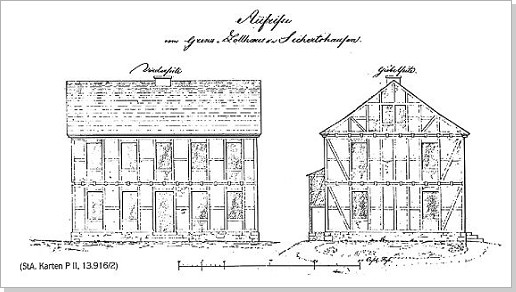 Aufriss
vom Grenz-Zollhaus in Sechertshausen.
Vorderseite
Giebelseite
(StA. Karten P II, 13.916/2)